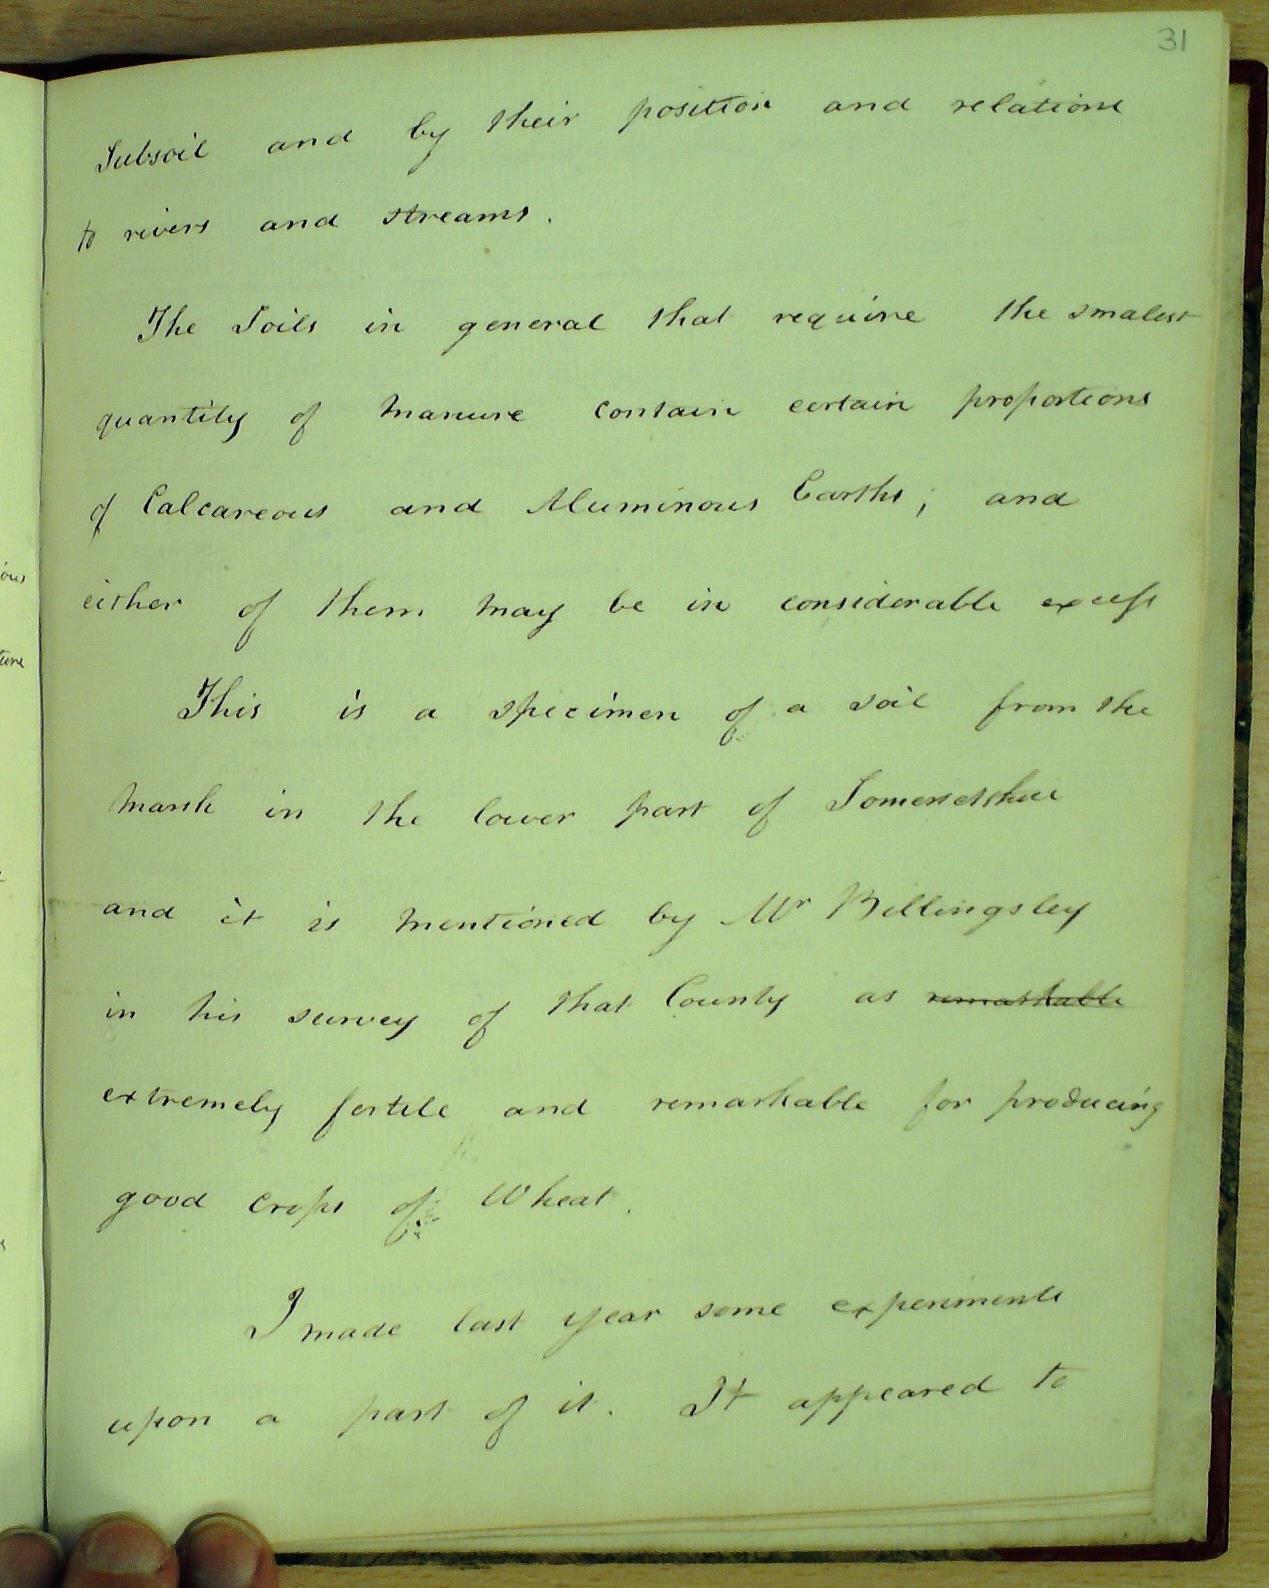 31
Subsoil and by their position and relations
to rivers and streams.
The Soils in general that require the smalest
quantity of manure contain certain proportions
of Calcareous and Aluminous Earths; and
either of them may be in considerable excess
This is a specimen of a soil from the
marsh in the lower part of Somersetshire
and it is mentioned by Mr Billingsley
in his survey of that County as remarkable
extremely fertile and remarkable for producing
good crops of Wheat.
I made last year some experiments
upon a part of it. It appeared to